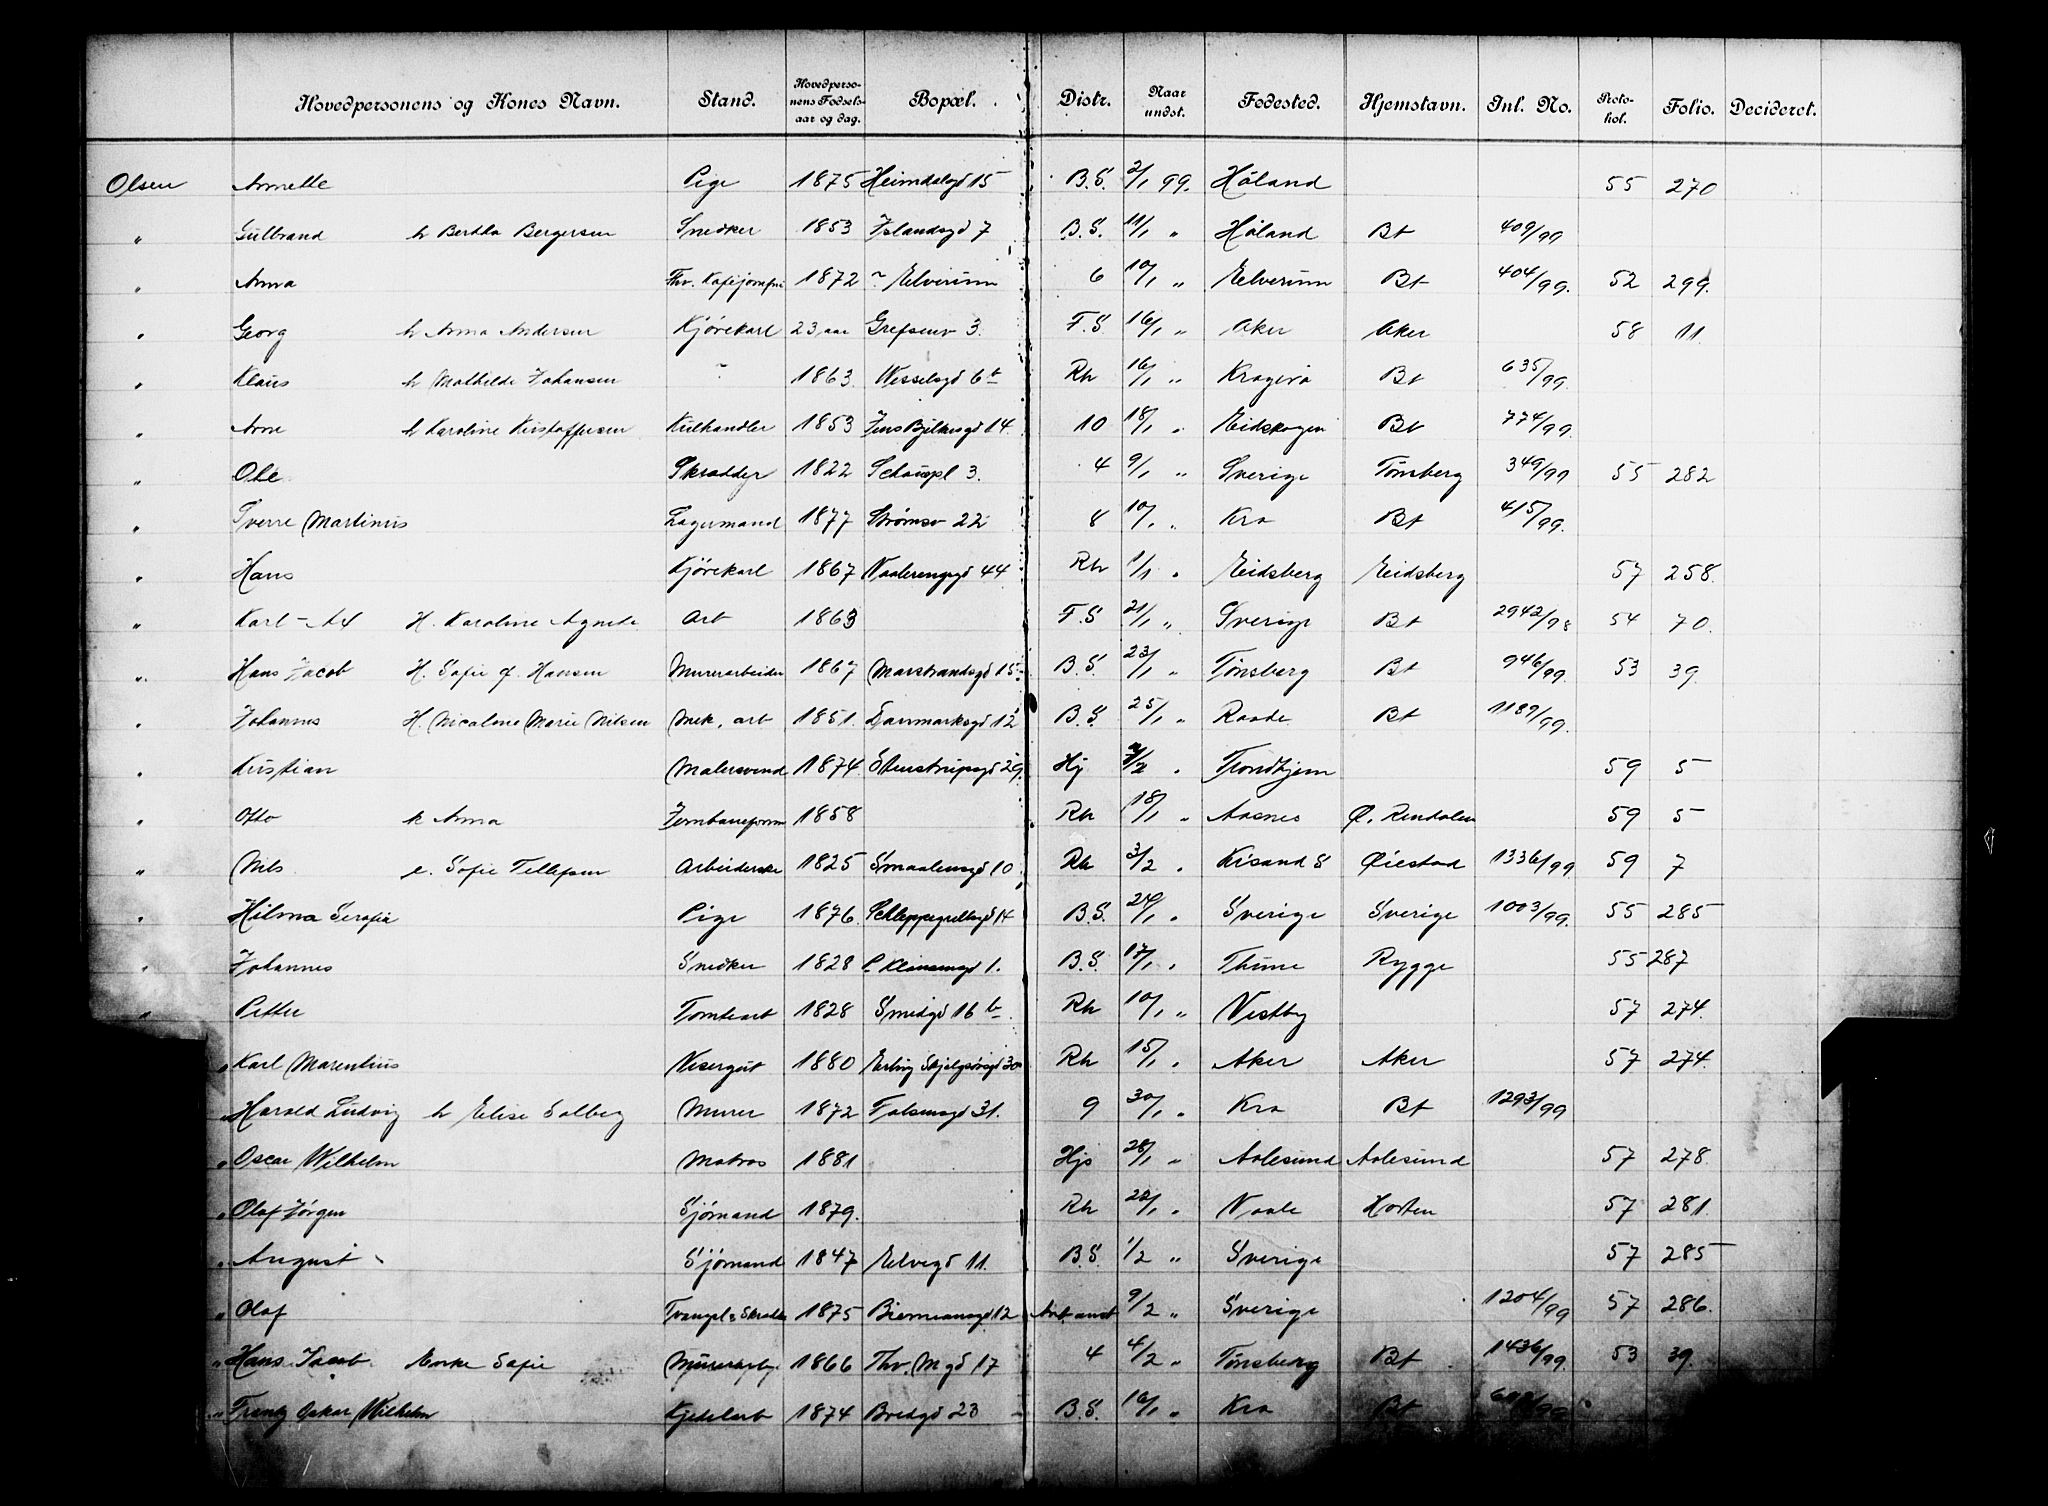 Hovedpersonens og Kones Navn. Stand. Hovedperso-nens Fødsels-aar og dag. Bopæl. Distr. Naar undst. Fødested. Hjemstavn. Inl. No. Proto-kol. Folio. Decideret.
Olsen Annette Pige 1875 Heimdalsgd 15 B.S. 2/1 99. Höland 55 270
" Gulbrand h Bertha Bergersen Snedker 1853 Islandsgd 7 B.S. 11/1 " Höland Bt 409/99
" Anna Thv. Kafejomfru 1872 Elverum 6 10/1 " Elverum Bt 404/99. 52 299.
" Georg h Anna Andersen Kjörekarl 23 aar Grefsenv 3. F.S. 16/1 " Aker Aker 58 11.
" Klaus h Mathilde Johansen " 1863 Wesselsgd 6b Rh 16/1 " Kragerö Bt 635/99.
" Arne h Karoline Kristoffersen Kulhandler 1853 Jens Bjelkesgd 14. 10 18/1 " Eidskogen Bt 774/99.
" Ole Skrædder 1822 Schouspl 3. 4 9/1 " Sverige Tönsberg 349/99 55 282
" Sverre Martinus Lagermand 1877 Strömsv 22 8 10/1 " Kra Bt 415/99.
" Hans Kjörekarl 1867 Vaalerengsgd 44 Rh 1/1 " Eidsberg Eidsberg 57 258.
" Karl - Ax H. Karoline Agneta Arb 1863 F.S 21/1 " Sverige Bt 2942/98 54 70.
" Hans Jacob H. Sofie f. Hansen Murerarbeider 1867 Marstrandsgd 15 B.S. 23/1 " Tönsberg Bt 946/99. 53 39.
" Johannes H. Nicoline Marie Nilsen Mek. arb 1851. Danmarksgd 12 B.S. 25/1 " Raade Bt 1189/99.
" Kristian Malersvend 1874 Stenstrupsgd 29. Hj /2 " Trondhjem 59 5
" Otto h Anna 1858 Rh 18/1 " Aasnes Ø. Rendalen 59 5
" Nils e. Sofie Tellefsen Arbeiderske 1825 Smaalensgd 10 Rh 3/2 " Krsand S Øiestad 1336/99 59 7
" Hilma Serafia Pige 1876. Schleppegrellsgd 14 B.S. /1 " Sverige Sverige 1003/99. 55 285
" Johannes Snedker 1828 1. B.S. 17/1 " Thune Rygge 55 287
" Petter Tomtearb 1828 Smedgd 16b Rh 10/1 " Vestby 57 274.
" Karl Marentius Visergut 1880 Erling Skjalgsönsgd 30 Rh 15/1 " Aker Aker 57 274.
" Harald Ludvig h Elise Solberg Murer 1872 Totensgd 31. 9 30/1 " Kra Bt 1293/99
" Oscar Wilhelm Matros 1881 Hjs 28/1 " Aalesund Aalesund 57 278.
" Olaf Jörgen Sjömand 1879. Rh 22/1 " Vaale Horten 57 281.
" August Sjömand 1847 Elvegd 11. B.S. 1/2 " Sverige 57 285
" Olaf 1875 gd 12 Arb anst 9/2 " Sverige 1204/99 57 286.
" Hans Jacob Enke Sofie Murerarb 1866 Thv. Mgd 17 4 4/2 " Tönsberg Bt 1436/99. 53 39
" Frentz Oskar Wilhelm Kjedelarb 1874 Bredgd 23 B.S. 16/1 " Kra Bt